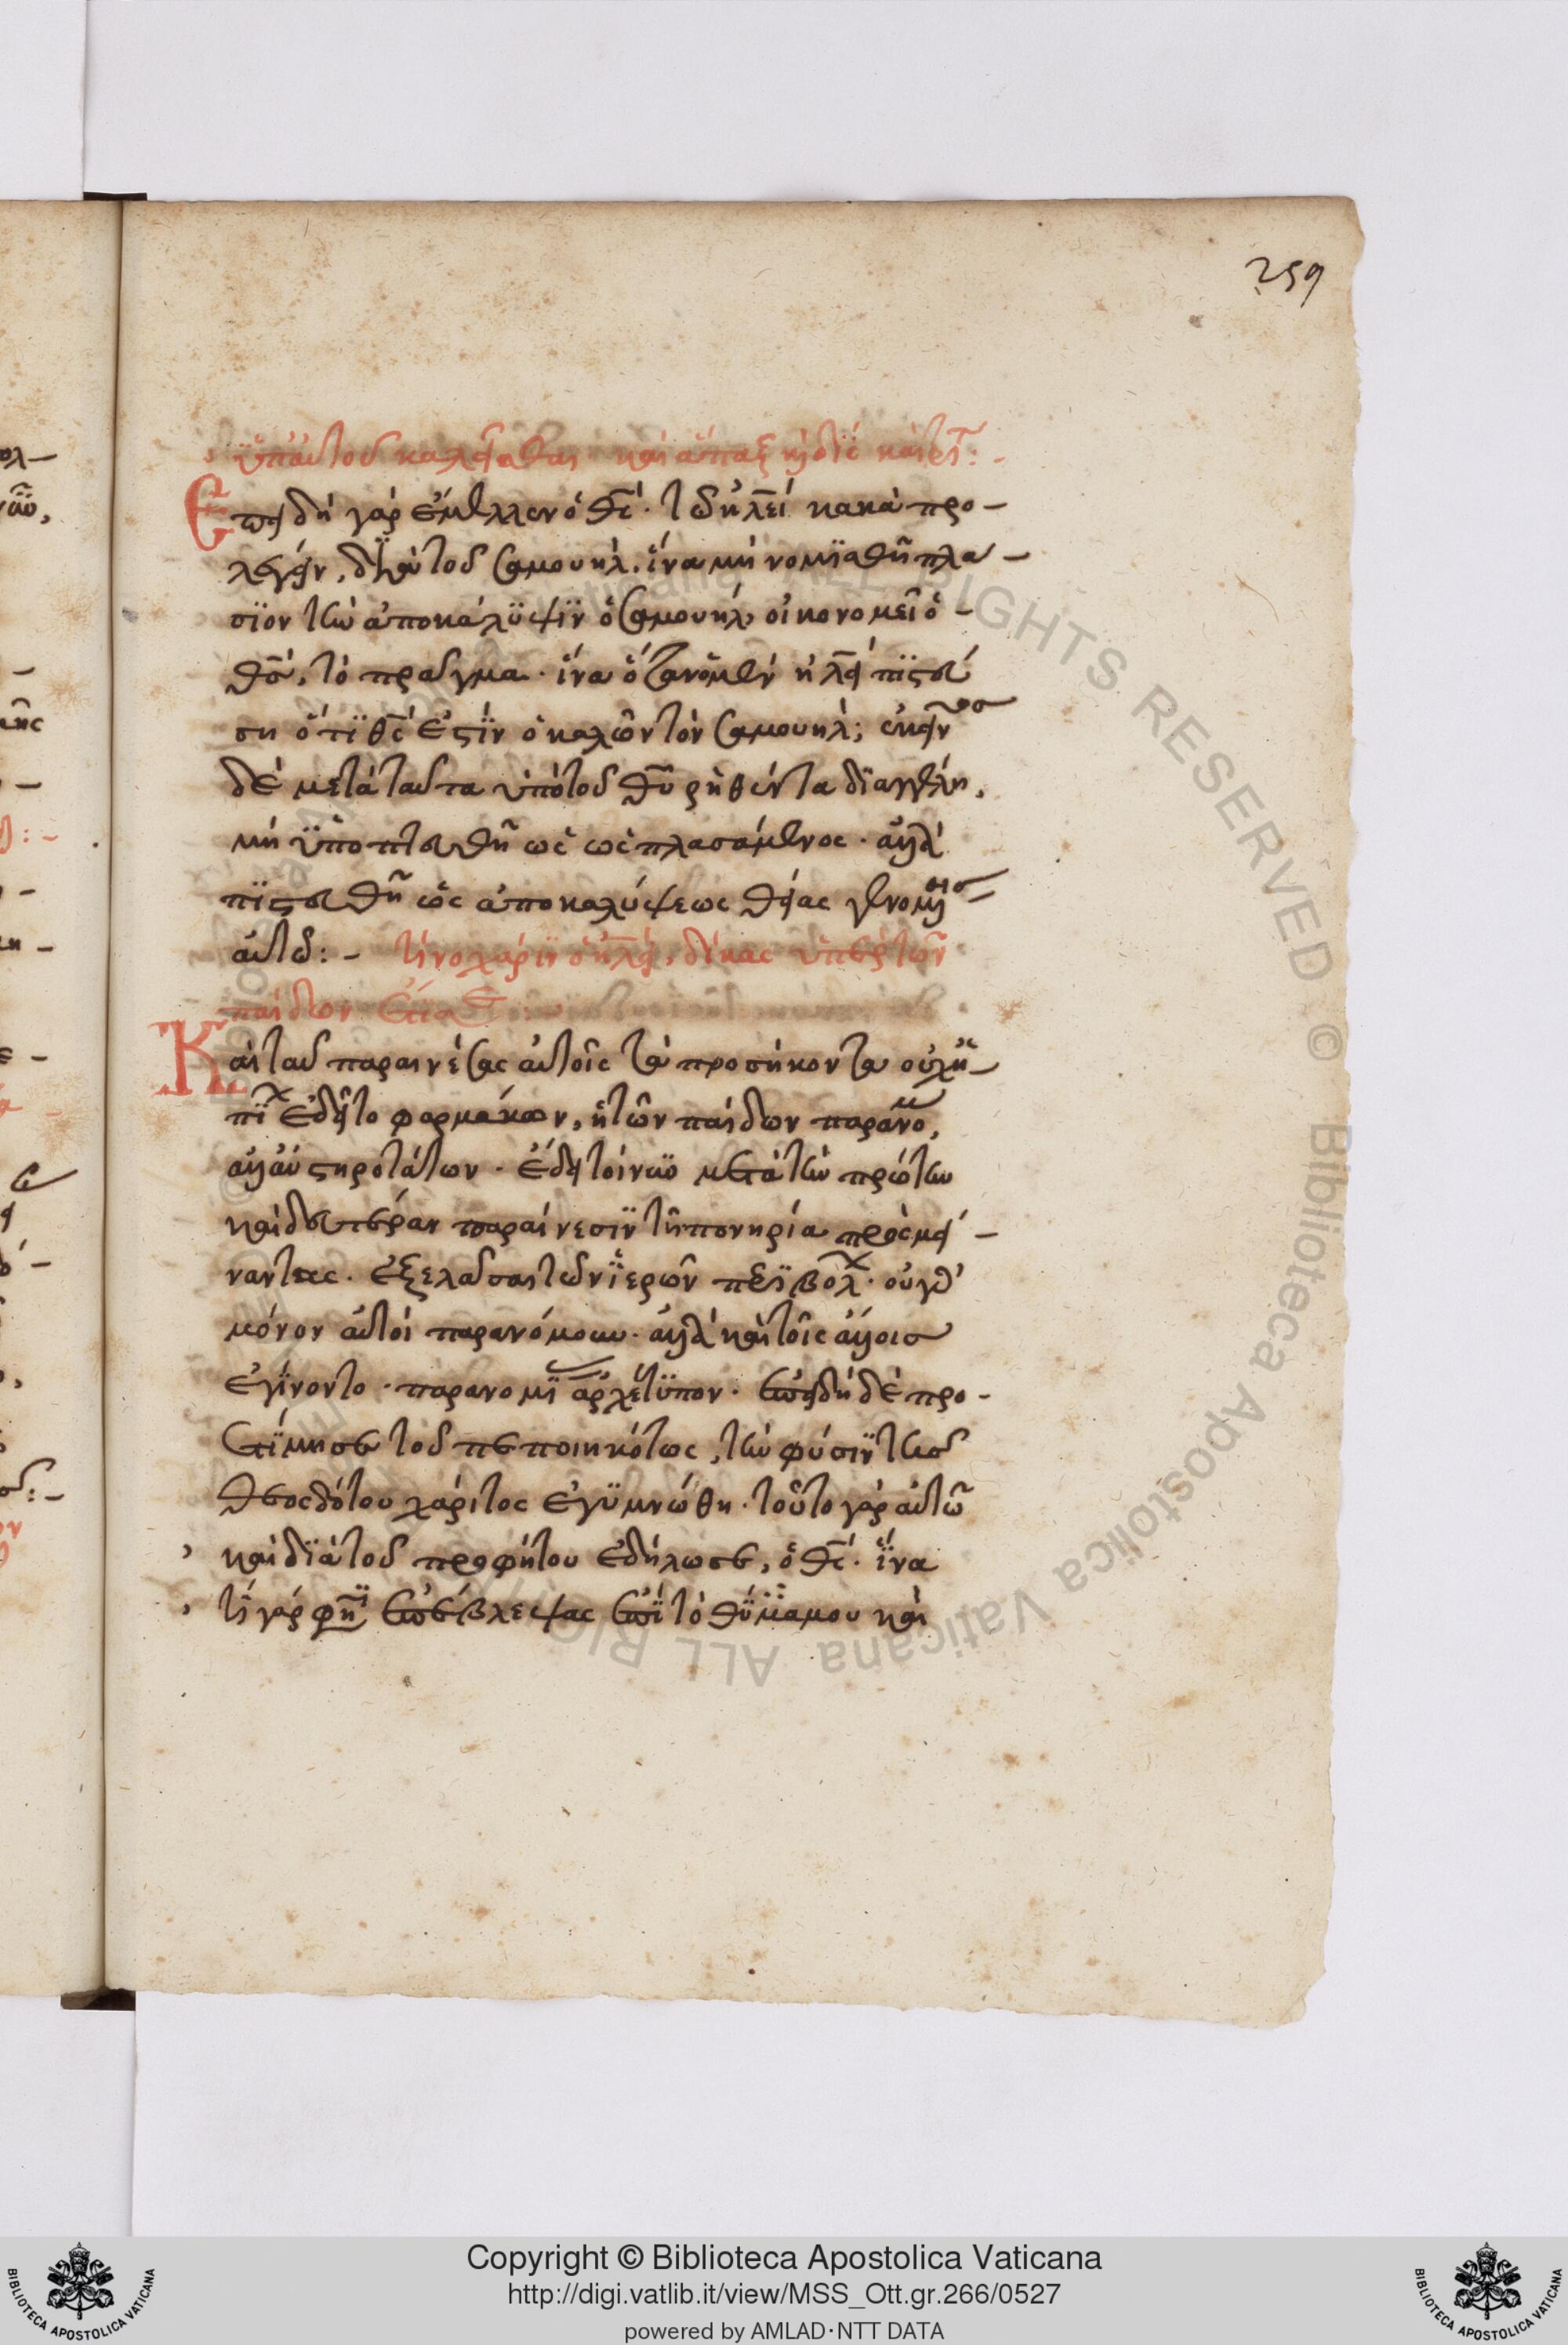 259
ὑπ' αὐτοῦ καλεῖσθαι καὶ ἅπαξ καὶ δὶς καὶ τρὶς:-
Ἐπειδὴ γὰρ ἔμελλεν ὁ θς· τῶ ἠλεὶ κακὰ προ-
λέγειν, δι' αὐτοῦ σαμουὴλ, ἵνα μὴ νομισθῆ πλα-
σιον τὴν ἀποκάλυψιν ὁ σαμουὴλ, οἰκονομεῖ ὁ-
θς, τὸ πρᾶγμα· ἵνα ὁ ἠλεὶ πιστεύ
ση ὅτι θς ἐστιν ὁ καλῶν τὸν σαμουήλ; ἐκεῖνος
δὲ μετὰ ταῦτα ὑπὸ τοῦ θυ ῥηθέντα διαγγέλη,
μὴ ὑποπτευθῆ ὡς ὡς πλασάμενος· ἀλλὰ
πιστευθῆ ὡς ἀποκαλύψεως θείας γενομένης
αὐτῶ:- τίνος χάριν ὁ ἠλεὶ, δίκας ὑπὲρ τῶν
παίδων
Καὶ ταῦ παραινέσας αὐτοῖς τὰ προσήκοντα οὐκ ἠ-
πίων ἐδεῖτο φαρμάκων, ἡ τῶν παίδων παρανομ,
ἀλλ' αὐστηροτάτων· ἔδει τοίνυν μετὰ τὴν πρώτην
καὶ δευτέραν παραίνεσιν τῆ πονηρία προσμεί-
ναντας· ἐξελάσαι τῶν ἱερῶν περιβόλων· οὐ γὰρ
μόνον αὐτοὶ παρανόμουν· ἀλλὰ καὶ τοῖς ἄλλοις
ἐγίνοντο· παρανομί ἀρχέτυπον· ἐπειδὴ δὲ προ-
ετίμησε τοῦ πεποιηκότος, τὴν φύσιν τῆς
θεοσδότου χάριτος ἐγυμνώθη· τοῦτο γὰρ αὐτῶ
καὶ διὰ τοῦ προφήτου ἐδήλωσε, ὁ θς· ἵνα
τί γάρ φη ἐπέβλεψας ἐπὶ τὸ θυμίαμά μου καὶ
Copyright © Biblioteca Apostolica Vaticana
http://digi.vatlib.it/view/MSS_Ott.gr.266/0527
powered by AMLAD·NTT DATA
BIBLIOTECA APOSTOLICA VATICANA
BIBLIOTECA APOSTOLICA VATICANA